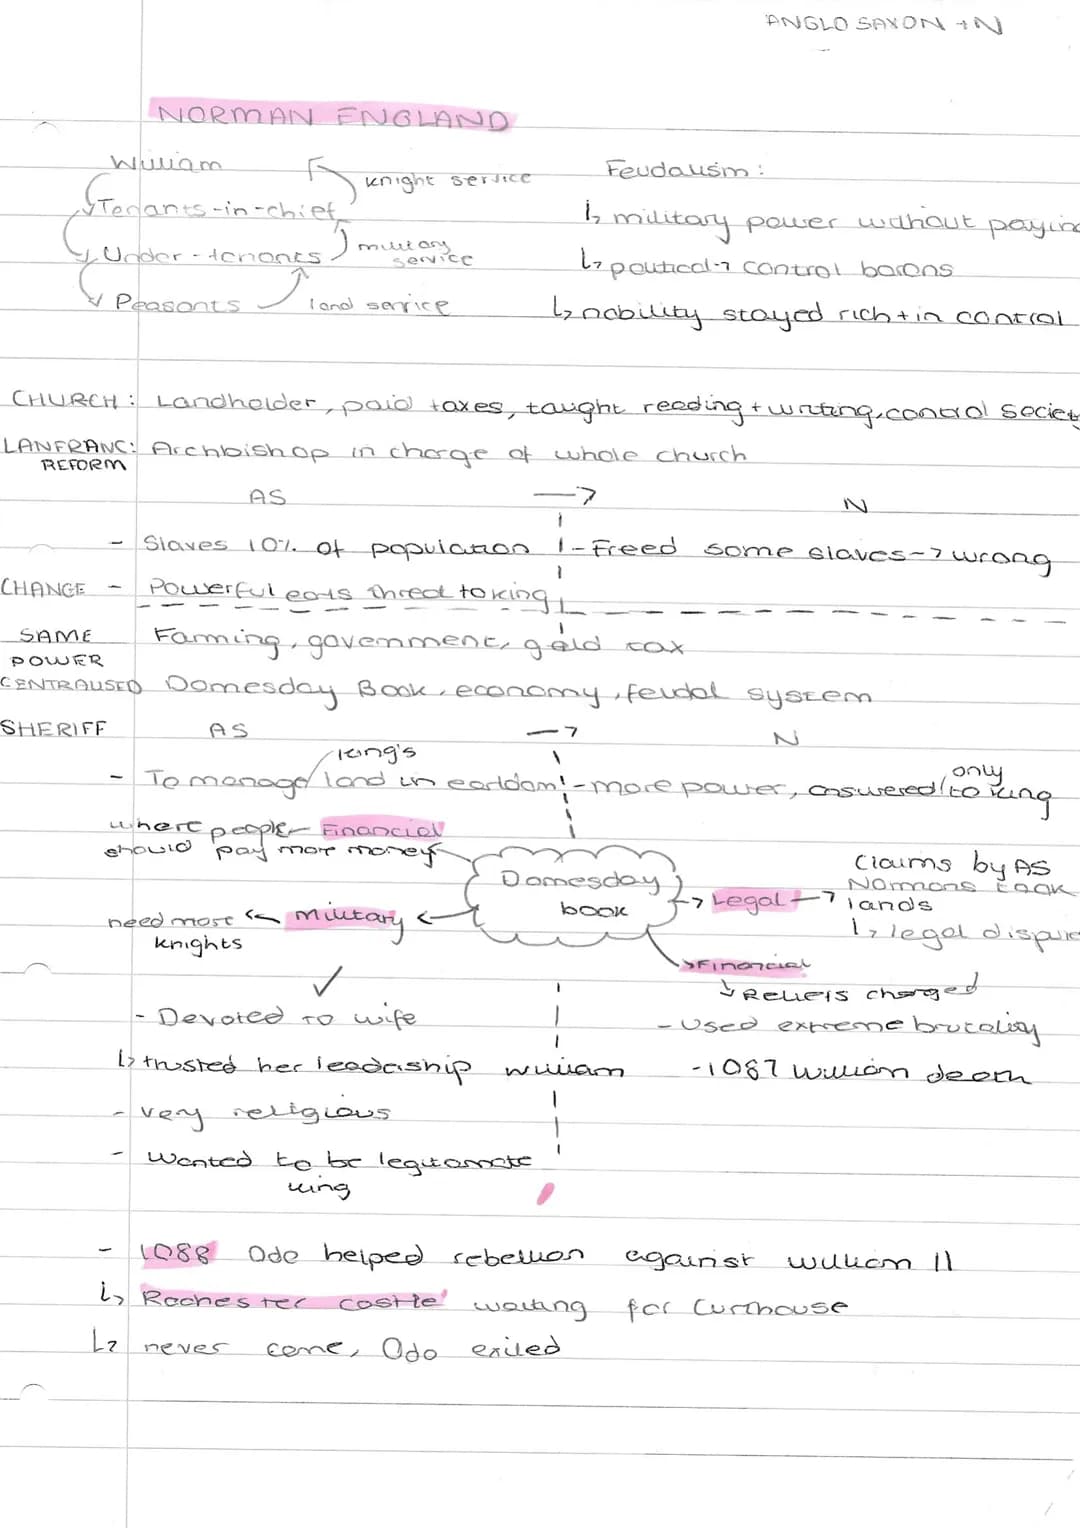 ANGLO SAXON + N
NORMAN ENGLAND
William
knight service
Tenants-in-chief
Under-tenants
military
service
Peasants
land service
Feudalism:
↳ military power without paying
↳ political → control barons
↳ nobility stayed rich + in control
CHURCH: Landholder, paid taxes, taught reading + writing, control societ
LANFRANC: Archbishop in charge of whole church
REFORM
AS → N
- Slaves 10% of population - Freed some slaves → wrong
CHANGE - Powerful earls threat to king
SAME Farming, government, geld tax
POWER
CENTRALISED Domesday Book, economy, feudal system
SHERIFF AS → N
king's
- To manage land in earldom - more power, answered only to king
where people Financial
should pay more money
Domesday
book
need more ← Military
knights
Legal → Claims by AS
Normans took
lands
↳ legal dispu
Financial
↓ Reliefs charged
✓
- Devoted to wife
↳ trusted her leadership
William
- very religious
- Wanted to be legitamate
king
- Used extreme brutality
- 1087 William death
- 1088 Odo helped rebellion against William II
↳ Rochester castle waiting for Curthouse
↳ never came, Odo exiled